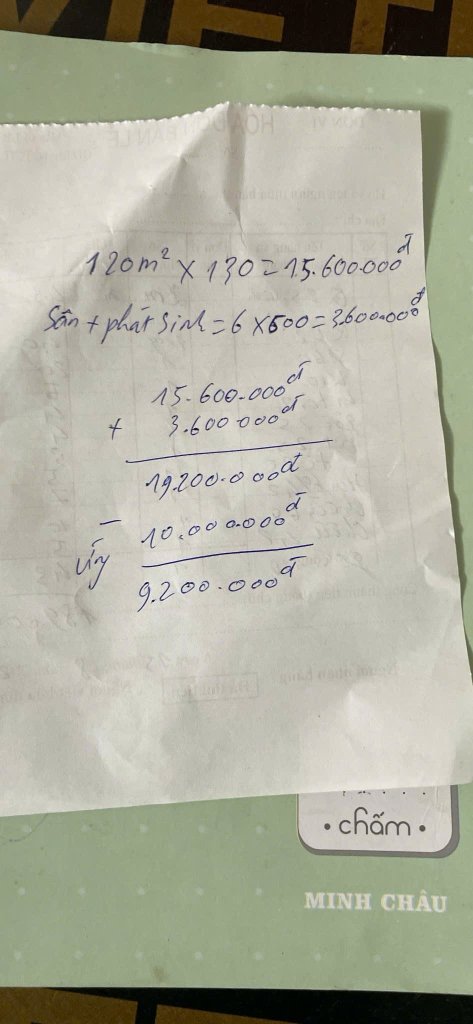 120m² x 130 = 15.600.000đ
Sân + phát sinh = 6 x 600 = 3.600.000đ
15.600.000đ
+ 3.600.000đ
19.200.000đ
- 10.000.000đ
ứng
9.200.000đ
chấm
MINH CHÂU